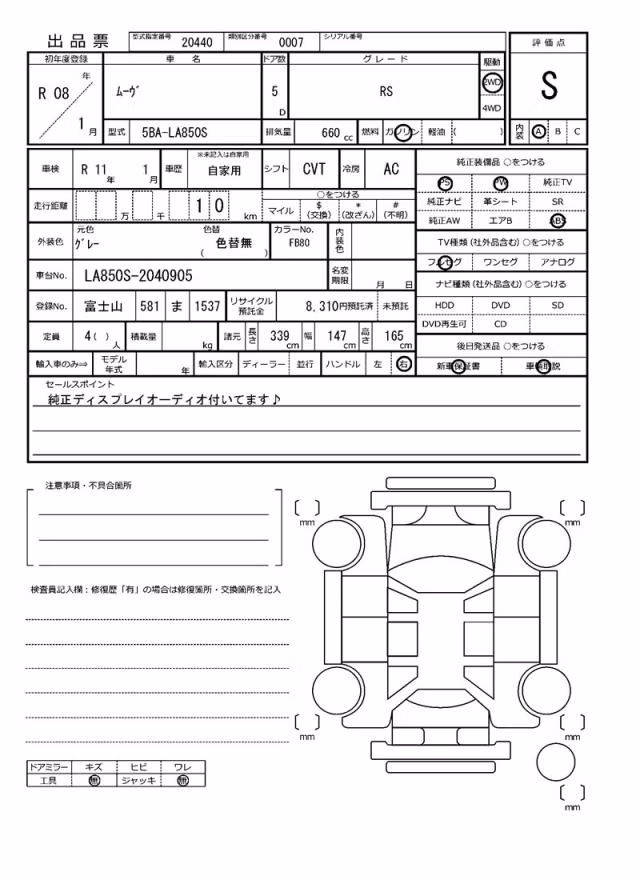 出品票 型式指定番号 20440 類別区分番号 0007 シリアル番号
初年度登録 車名 ドア数 グレード 駆動 評価点
R 08 年 1 月 ムーヴ 5 D RS 2WD 4WD S
型式 5BA-LA850S 排気量 660 cc 燃料 ガソリン 軽油 ( ) 内装 A B C
車検 R 11 年 1 月 車歴 ※未記入は自家用 自家用 シフト CVT 冷房 AC 純正装備品 ○をつける
PS PW 純正TV
走行距離 万 千 1 0 km ○をつける
マイル $(交換) *(改ざん) #(不明)
純正ナビ 革シート SR
純正AW エアB ABS
外装色 元色 グレー 色替 ( 色替無 ) カラーNo. FB80 内装色
TV種類 (社外品含む) ○をつける
フルセグ ワンセグ アナログ
車台No. LA850S-2040905 名変期限 月 日
ナビ種類 (社外品含む) ○をつける
登録No. 富士山 581 ま 1537 リサイクル預託金 8,310円預託済 未預託
HDD DVD SD
DVD再生可 CD
定員 4( ) 人 積載量 kg 諸元 長さ 339 cm 幅 147 cm 高さ 165 cm
後日発送品 ○をつける
輸入車のみ⇒ モデル年式 年 輸入区分 ディーラー 並行 ハンドル 左 右
新車保証書 車輌取説
セールスポイント
純正ディスプレイオーディオ付いてます♪
注意事項・不具合箇所
mm
mm
検査員記入欄：修復歴「有」の場合は修復箇所・交換箇所を記入
mm
mm
ドアミラー キズ ヒビ ワレ
工具 無 ジャッキ 無
mm